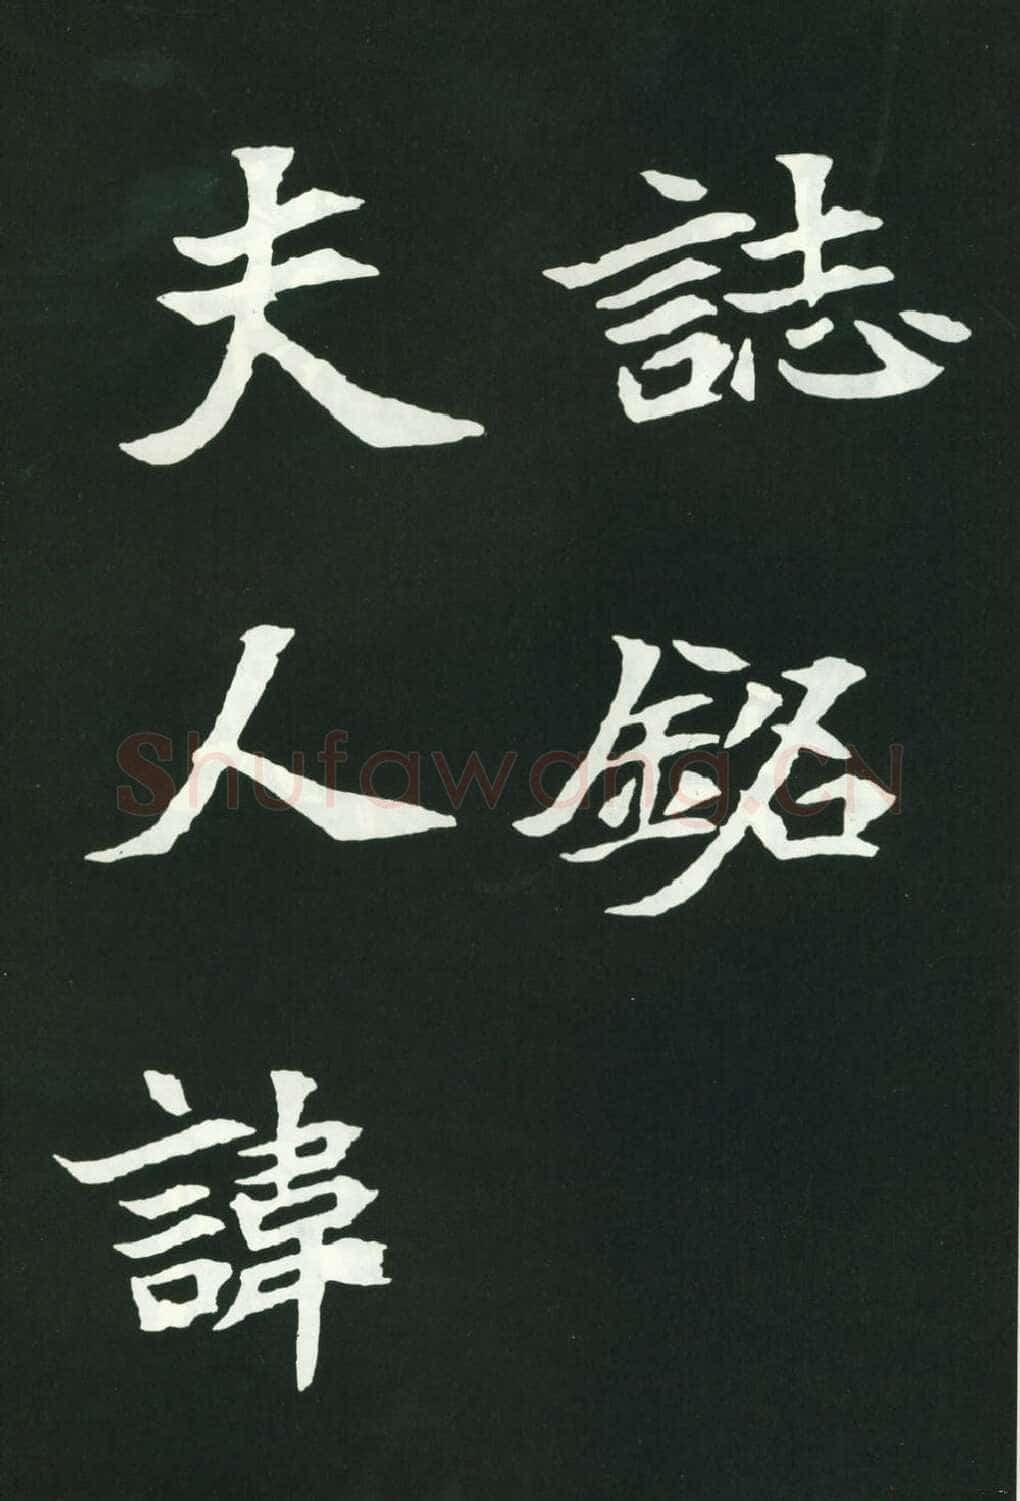 誌銘
夫人諱
Shufawang.CN